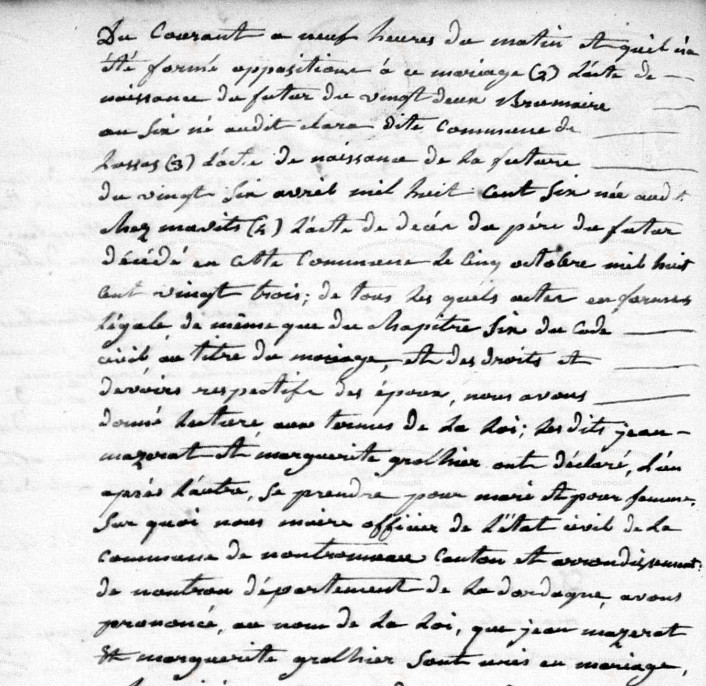 Du Courant a neuf heures du matin et quil n'a
été formé opposition à ce mariage (2) L'acte de
naissance du futur du vingt deux Brumaire
an Six né audit dite Commune de
(3) L'acte de naissance de la future
du vingt Six avril mil huit Cent Six née audt
chez mavits (4) L'acte de décès du pére du futur
décédé en cette Commune Le Cinq octobre mil huit
Cent vingt trois; de tous les quels actes en formes
légale de même que du Chapitre Six du Code
civil au titre du mariage, et des droits et
devoirs respectifs des époux, nous avons
donné lecture aux termes de La Loi; Les dits jean
mazerat et marguerite grolhier ont déclaré, L'un
après L'autre, Se prendre pour mari et pour femme,
Sur quoi nous maire officier de L'état civil de La
commune de nontronneau Canton et arrondissement
de nontron département de La dordogne, avons
prononcé, au nom de La Loi, que jean mazerat
Et marguerite grolhier Sont unis en mariage,